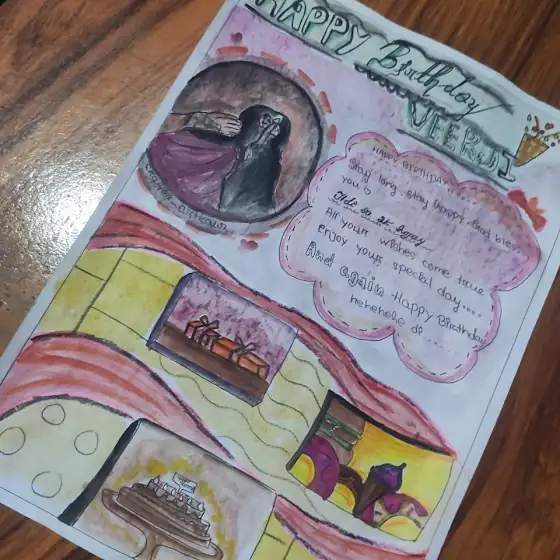 HAPPY Birthday
VEERJI
HAPPY BIRTHDAY.....
Stay long, stay happy, God bless
you
All your wishes come true
enjoy your special day....
And again Happy Birthday
hehehehe di.....